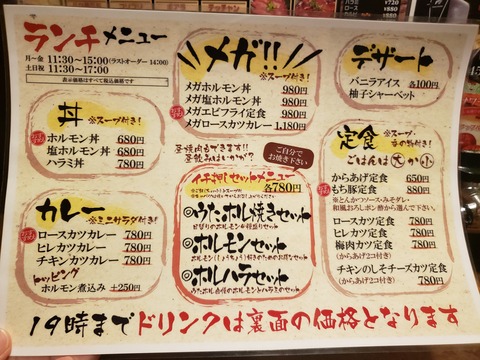 ランチメニュー
月~金 11:30~15:00(ラストオーダー 14:00)
土日祝 11:30~17:00
表示価格はすべて税込価格です
丼
※スープ付き!
ホルモン丼 680円
塩ホルモン丼 680円
ハラミ丼 780円
カレー
※ミニサラダ付き!
ロースカツカレー 780円
ヒレカツカレー 780円
チキンカツカレー 780円
トッピング
ホルモン煮込み +250円
メガ!!
※スープ付き!
メガホルモン丼 980円
メガ塩ホルモン丼 980円
メガエビフライ定食 980円
メガロースカツカレー 1,180円
昼焼肉もできます!
昼飲みはいかが?
ご自分で
お焼き下さい
イチ押しセットメニュー
各780円
◎うたホル焼きセット
◎ホルモンセット
◎ホルハラセット
デザート
バニラアイス 各100円
柚子シャーベット
定食
※スープ・
ごはんは大か小
からあげ定食 650円
もち豚定食 880円
※とんかつソース・みそダレ・
和風おろしポン酢から選んで下さい。
ロースカツ定食 780円
ヒレカツ定食 780円
梅肉カツ定食 780円
(からあげ2コ付き)
チキンのしそチーズカツ定食
(からあげ2コ付き) 780円
19時までドリンクは裏面の価格となります